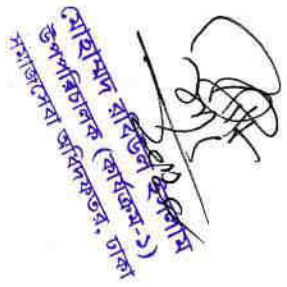 মোহাম্মদ রবিউল ইসলাম
উপপরিচালক (কার্যক্রম-১)
সমাজসেবা অধিদফতর, ঢাকা